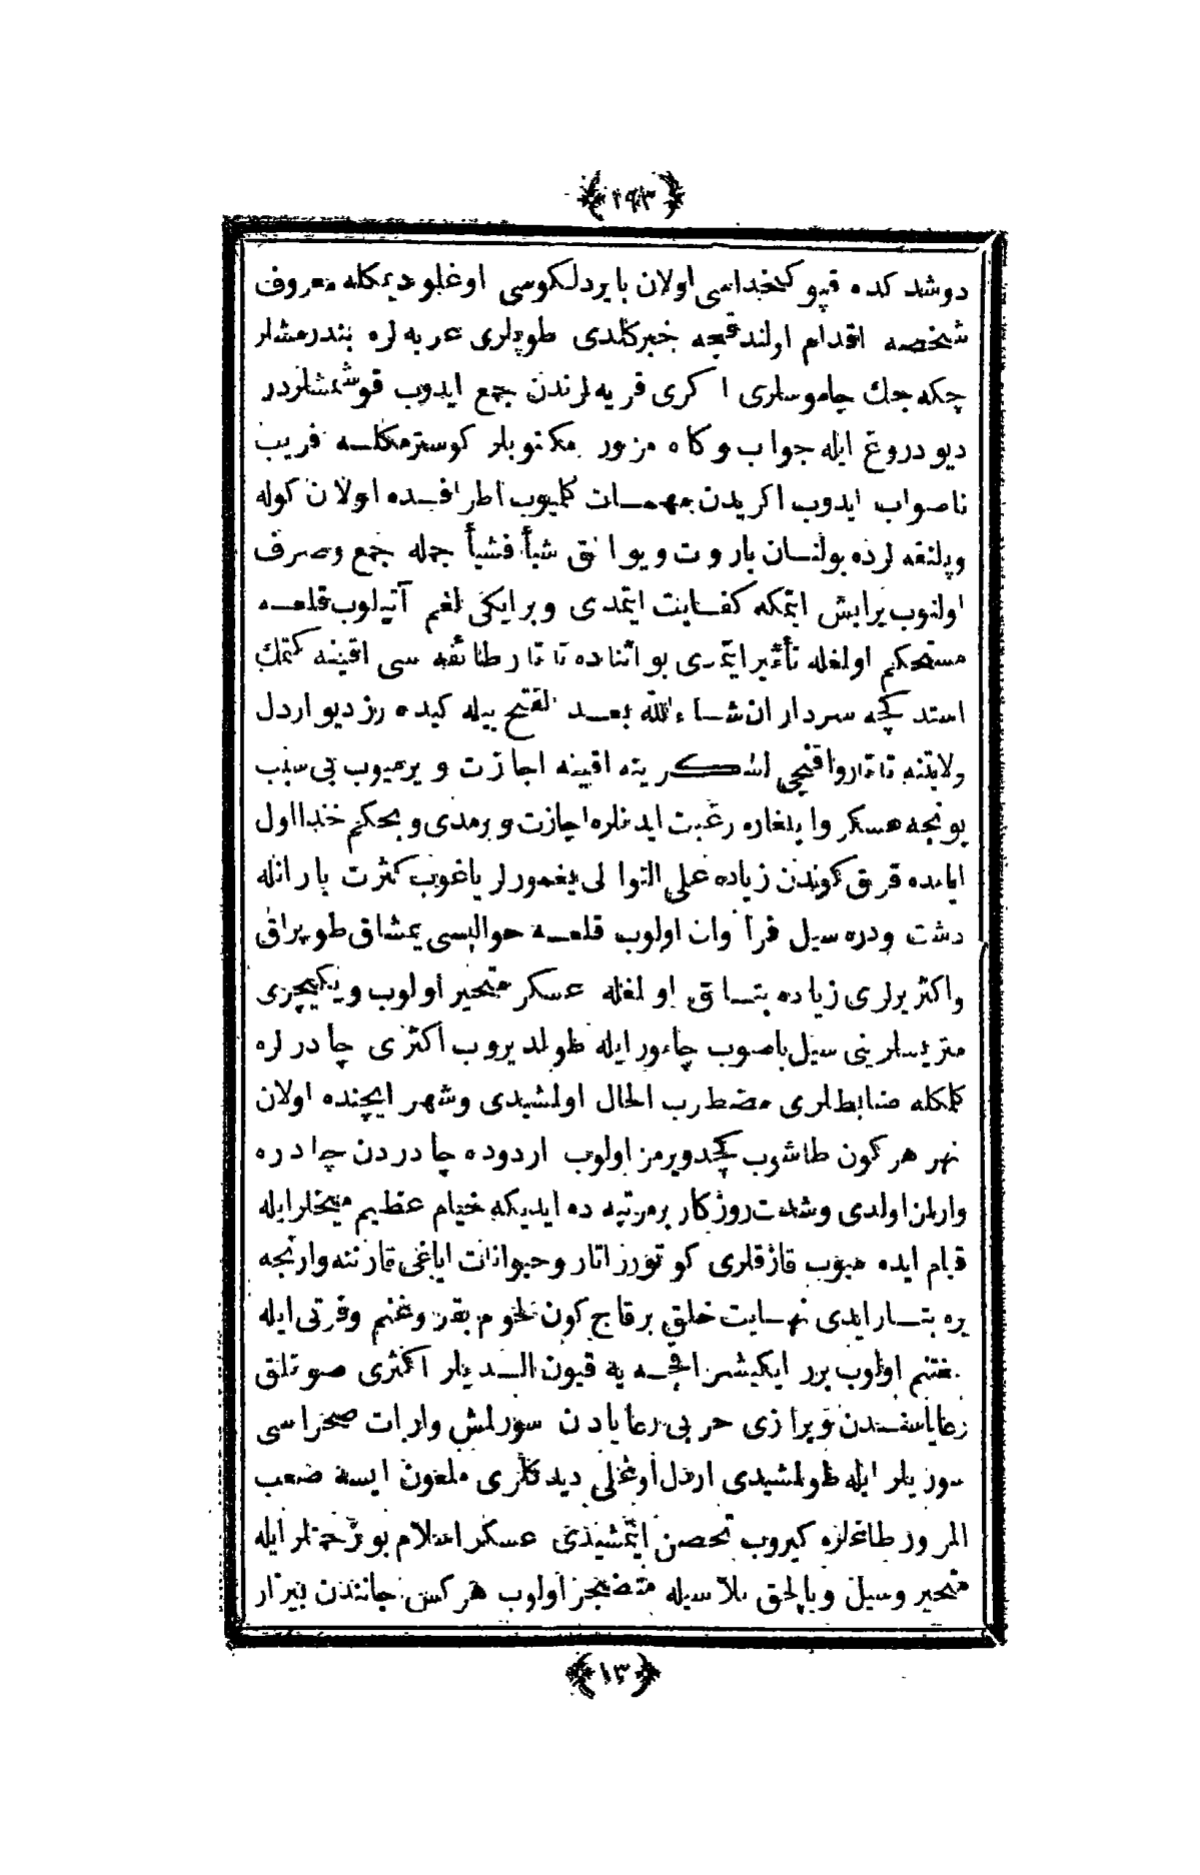 ﴿١٩٣﴾
دوشدكده قپو كتخداسی اولان بایرد لكوسی اوغلو دیمكله معروف
شخصه اقدام اولندقجه خبر كلدی طوپلری عربه لره بندرمشلر
چكه جك جاموسلری اكری قریه لرندن جمع ایدوب قوشمشلردر
دیو دروغ ایله جواب و كاه مزور مكتوبلر كوسترمكله فریب
ناصواب ایدوب اكریدن مهمات كلمیوب اطرافده اولان كوله
و پلنقه لرده بولنان باروت و یوانق شیأ فشیأ جمله جمع و صرف
اولنوب یرایش ایتمكه كفایت ایتمدی و بر ایكی لغم آتیلوب قلعه
مستحكم اولغله تأثیر ایتمدی بو اثناده تاتار طائفه سی اقینه كتمك
استدكجه سردار ان شاء الله بعد الفتح بیله كیده رز دیو اردل
ولایتنه تاتار و اقنجی لشكرینه اقینه اجازت ویرمیوب بی سبب
یونجه عسكر و ایلغاره رغبت ایدنلره اجازت ویرمدی و بحكم خدا اول
ایامده قرق كوندن زیاده علی التوالی یغمورلر یاغوب كثرت بارانله
دشت و دره سیل فراوان اولوب قلعه حوالیسی یمشاق طوپراق
و اكثر یرلری زیاده بتاق اولغله عسكر متحیر اولوب و یكیچری
متریسلرینی سیل باصوب چامور ایله طولدیروب اكثری چادرلره
كلمكله ضابطلری مضطرب الحال اولمشیدی و شهر ایچنده اولان
نهر هر كون طاشوب كچد ویرمز اولوب اردوده چادردن چادره
وارلمز اولدی و شدت روزكار بر مرتبه ده ایدیكه خیام عظیم میخلر ایله
قیام ایده میوب قازقلری كوتورر اتار و حیوانات ایاغی قارننه وارنجه
یره بتار ایدی نهایت خلق بر قاچ كون لحوم بقر و غنم وفرتی ایله
مغتنم اولوب برر ایكیشر اقچه یه قیون الدیلر اكثری صوتلق
رعایاسندن و برازی حربی رعایادن سورلمش وارات صحراسی
سوریلر ایله طولمشیدی اردل اوغلی دیدكلری ملعون ایسه صعب
المرور طاغلره كیروب تحصن ایتمشیدی عسكر اسلام بو زحمتلر ایله
متحیر و سیل و بالحق بلاسیله متضجر اولوب هركس جانندن بیزار
﴿١٣﴾